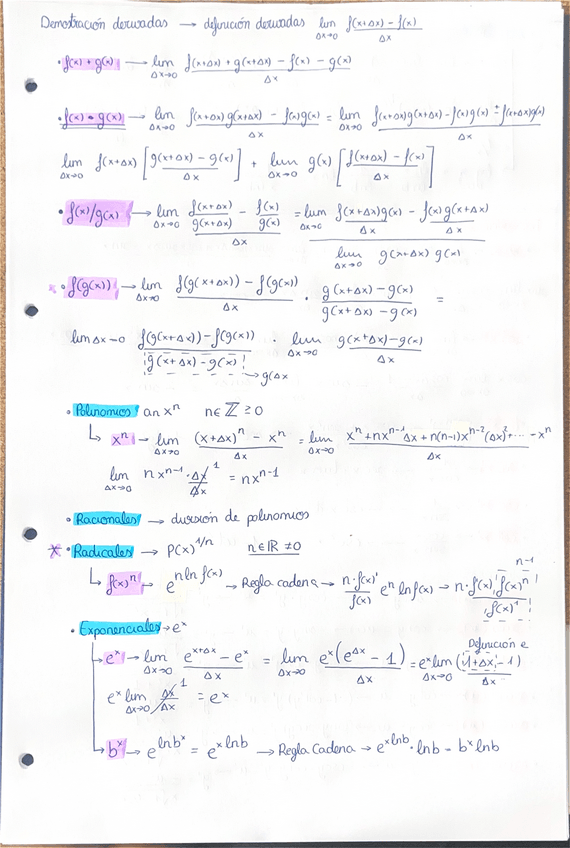 Demostración derivadas → definición derivadas lim Δx→0 (f(x+Δx) - f(x))/Δx
• f(x) + g(x) → lim Δx→0 (f(x+Δx) + g(x+Δx) - f(x) - g(x))/Δx
• f(x) • g(x) → lim Δx→0 (f(x+Δx)g(x+Δx) - f(x)g(x))/Δx = lim Δx→0 (f(x+Δx)g(x+Δx) - f(x)g(x) ± f(x+Δx)g(x))/Δx
lim Δx→0 f(x+Δx) [(g(x+Δx) - g(x))/Δx] + lim Δx→0 g(x) [(f(x+Δx) - f(x))/Δx]
• f(x)/g(x) → lim Δx→0 (f(x+Δx)/g(x+Δx) - f(x)/g(x))/Δx = (lim Δx→0 f(x+Δx)g(x)/Δx - f(x)g(x+Δx)/Δx)/(lim Δx→0 g(x+Δx) g(x))
• f(g(x)) → lim Δx→0 (f(g(x+Δx)) - f(g(x)))/Δx • (g(x+Δx) - g(x))/(g(x+Δx) - g(x)) =
lim Δx→0 (f(g(x+Δx)) - f(g(x)))/(g(x+Δx) - g(x)) • lim Δx→0 (g(x+Δx) - g(x))/Δx
→ g(Δx
• Polinomios an xⁿ n∈ℤ ≥0
↳ xⁿ → lim Δx→0 ((x+Δx)ⁿ - xⁿ)/Δx = lim Δx→0 (xⁿ + nxⁿ⁻¹Δx + n(n-1)xⁿ⁻²(Δx)²+ ... - xⁿ)/Δx
lim Δx→0 nxⁿ⁻¹ • Δx/Δx 1 = nxⁿ⁻¹
• Racionales → división de polinomios
* • Radicales → P(x)^1/n n∈ℝ ≠0
↳ f(x)ⁿ → e^(n ln f(x)) → Regla cadena → (n•f(x)'/f(x)) eⁿ ln f(x) → n•f(x)' f(x)ⁿ/f(x)¹ n-1
• Exponenciales → eˣ
Definición e
→ eˣ → lim Δx→0 (e^(x+Δx) - eˣ)/Δx = lim Δx→0 eˣ(e^Δx - 1)/Δx = eˣ lim Δx→0 (1+Δx - 1)/Δx
eˣ lim Δx→0 Δx/Δx 1 = eˣ
↳ bˣ → e^(ln bˣ) = e^(x ln b) → Regla Cadena → e^(x ln b) • ln b = bˣ ln b